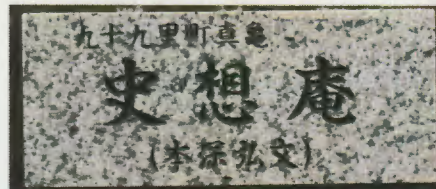 九十九里町真亀
史想庵
(本深弘文)